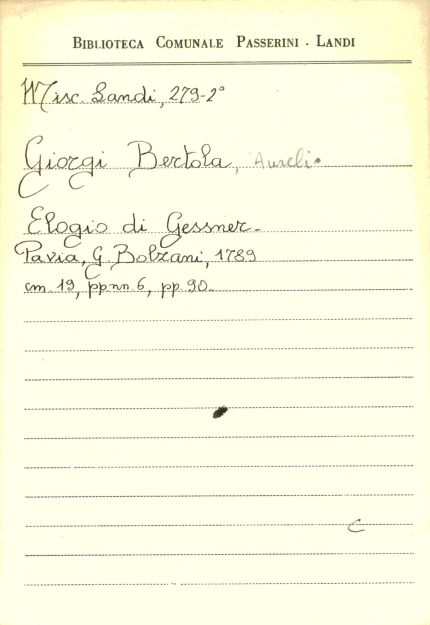 BIBLIOTECA COMUNALE PASSERINI - LANDI
Misc. Landi, 279-2°
Giorgi Bertola, Aurelio
Elogio di Gessner.
Pavia, G. Bolzani, 1789
cm. 19, pp.nn. 6, pp. 90.
C